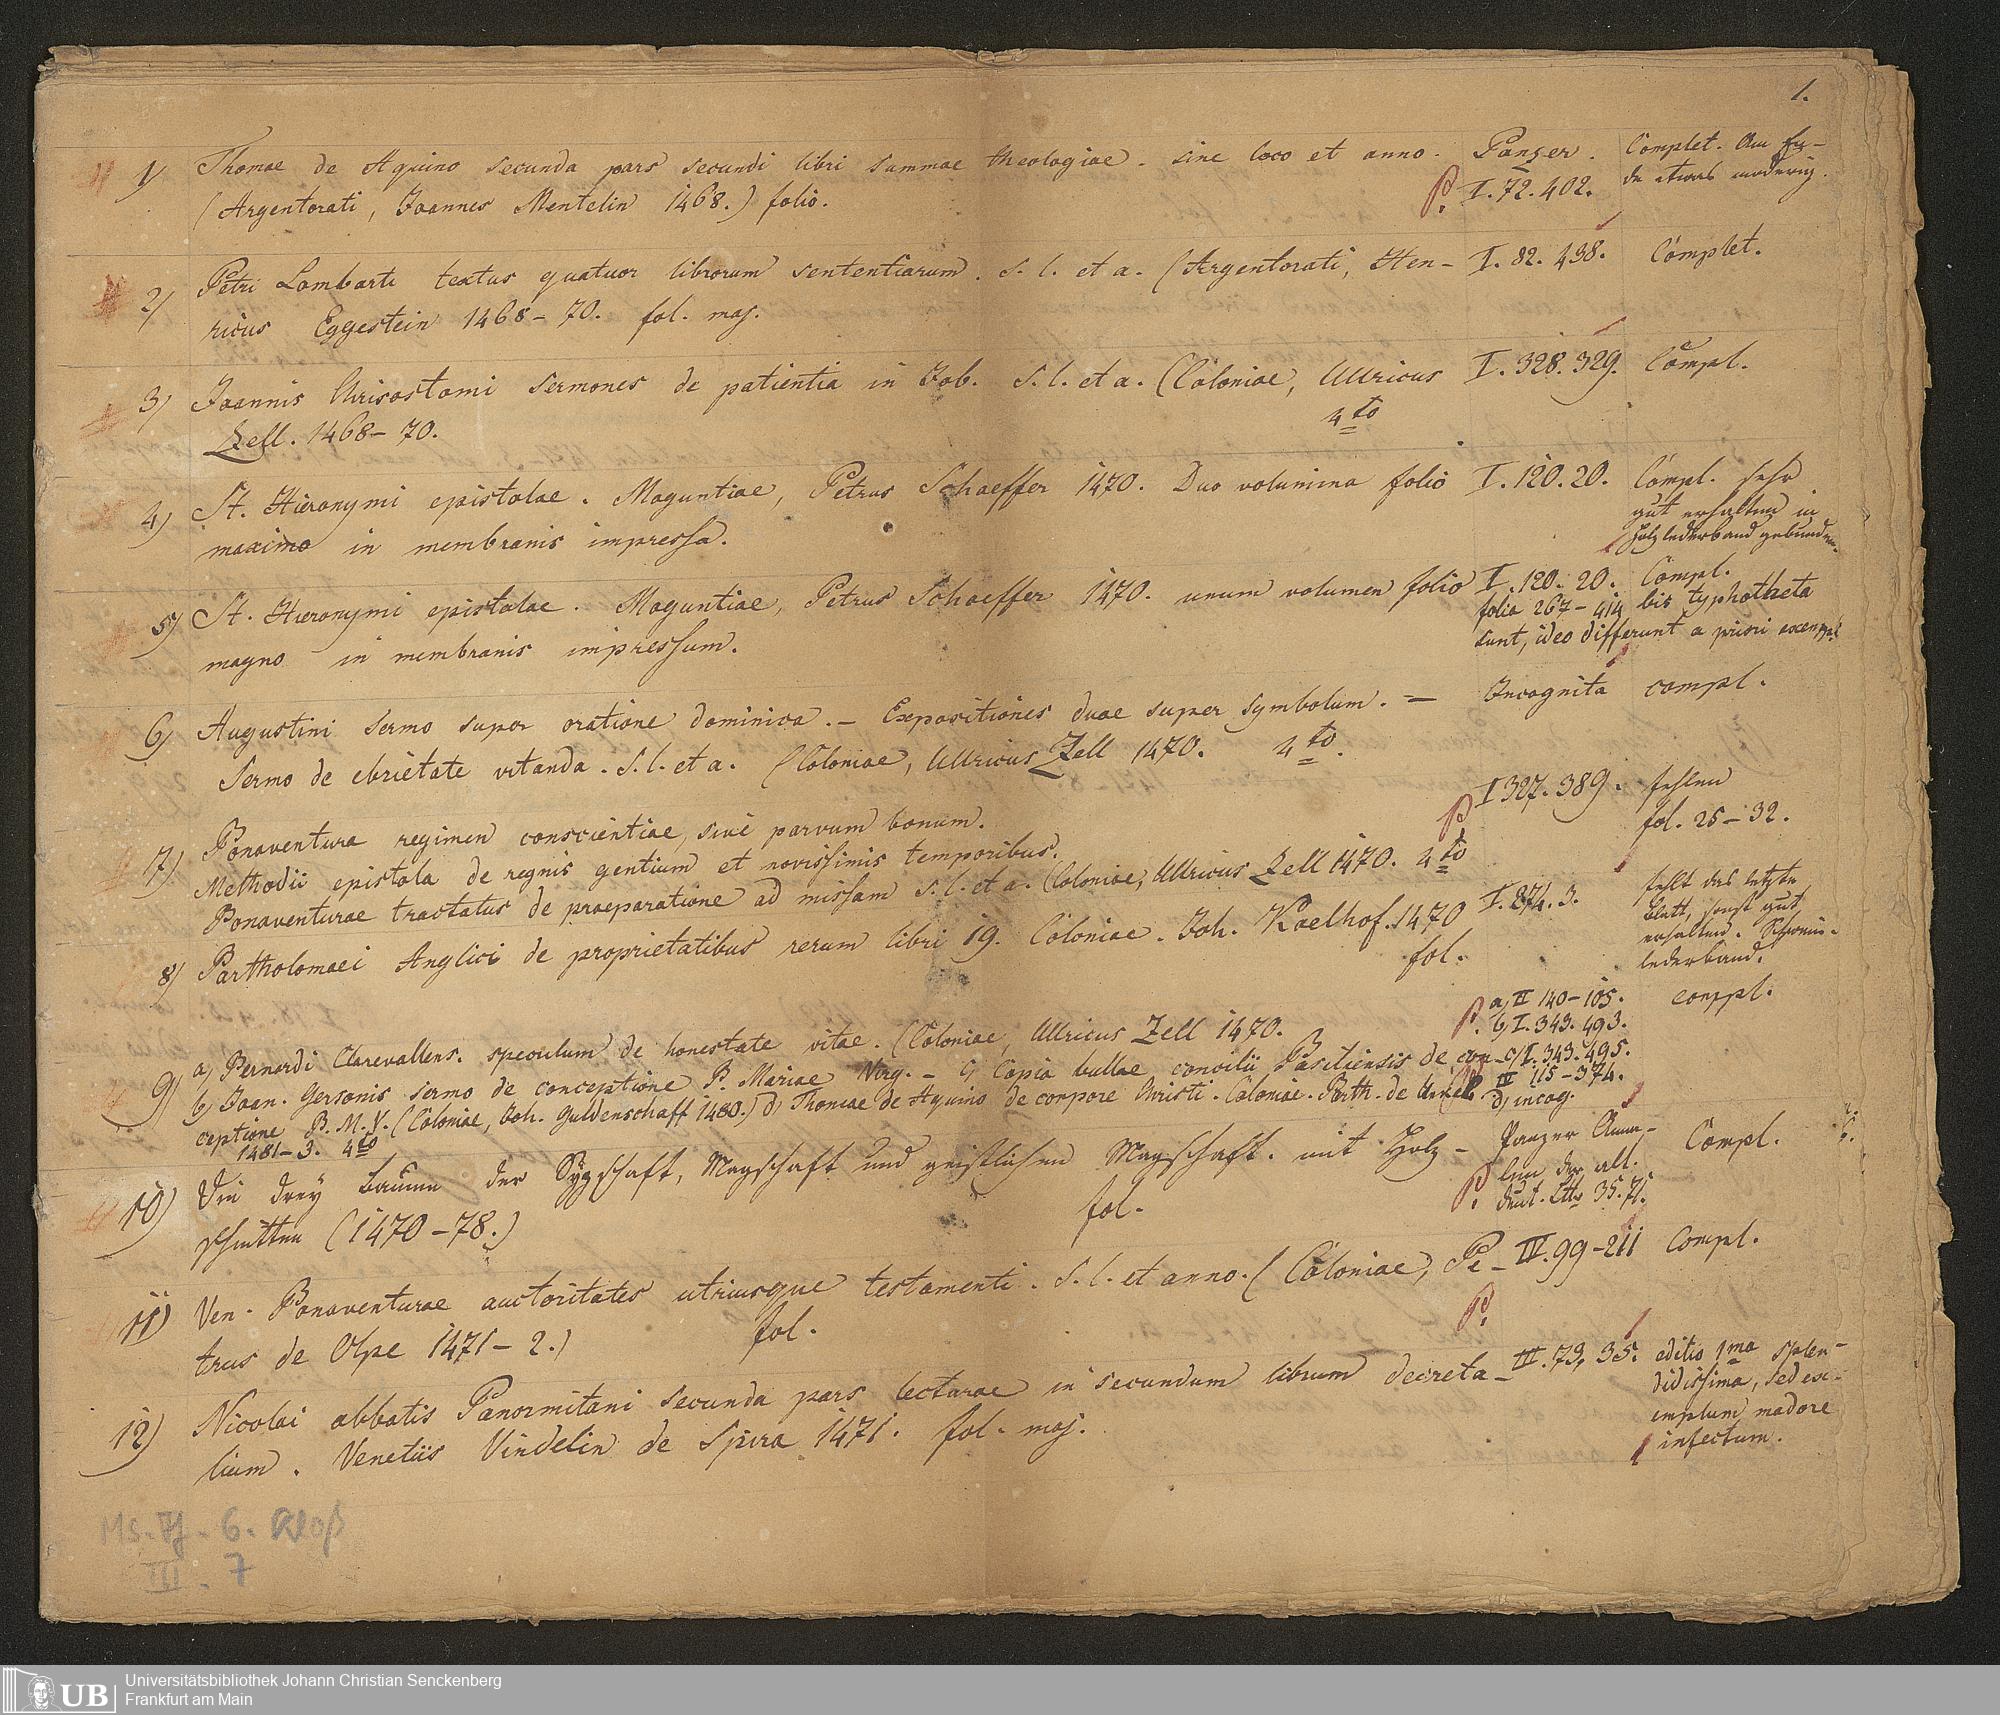 1.
1) Thomae de Aquino secunda pars secundi libri summae theologiae. sine loco et anno. Panzer. Complet. Am En-
(Argentorati, Joannes Mentelin 1468.) folio. P. I. 72. 402. de etwas moderig.
2) Petri Lombarti textus quatuor librorum sententiarum. s. l. et a. (Argentorati, Hen- I. 82. 438. Complet.
ricus Eggestein 1468-70. fol. maj.
3) Joannis Chrisostomi sermones de patientia in Job. s. l. et a. (Coloniae, Ulricus I. 328. 329. Compl.
Zell. 1468-70. 4to
4) St. Hieronymi epistolae. Moguntiae, Petrus Schoeffer 1470. Duo volumina folio I. 120. 20. Compl. sehr
maximo in membranis impressa. gut erhalten in
Holzlederband gebunden.
5) St. Hieronymi epistolae. Moguntiae, Petrus Schoeffer 1470. unum volumen folio I. 120. 20. Compl.
magno in membranis impressum. folia 267-414 bis typhotheta
sunt, ideo differunt a priori exempl.
6) Augustini sermo super oratione dominica. - Expositiones duae super symbolum. = Incognita compl.
Sermo de ebrietate vitanda. s. l. et a. (Coloniae, Ulricus Zell 1470. 4to.
7) Bonaventura regimen conscientiae, sive parvum bonum. P I 327. 389. fehlen
Methodii epistola de regnis gentium et novissimis temporibus. fol. 25-32.
Bonaventurae tractatus de praeparatione ad missam s. l. et a. (Coloniae, Ulricus Zell 1470. 4to
8) Bartholomaei Anglici de proprietatibus rerum libri 19. Coloniae. Joh. Koelhof. 1470 I. 274. 3. fehlt das letzte
fol. Blatt, sonst gut
erhalten. Schweins-
lederband.
9) a) Bernardi Clarevallens. speculum de honestate vitae. (Coloniae, Ulricus Zell 1470. P. a) II 140-105. compl.
b) Joan. Gersonis sermo de conceptione B. Mariae Virg. - c) Copia bullae concilii Basiliensis de con- b) I. 343. 493.
ceptione B. M. V. (Coloniae, Joh. Guldenschaff 1480.) d) Thomae de Aquino de corpore Christi. Coloniae. Barth. de Unkel c) I. 343. 495.
1481-3. 4to IV 115-374.
d) incog.
10) Die drey Bäume der Sygschaft, Magschaft und geistlichen Magschaft. mit Holz- Panzer Anna- Compl.
schnitten (1470-78.) fol. P. len der ält.
deut. Ltt 35. 7.
11) Ven. Bonaventurae auctoritates utriusque testamenti. s. l. et anno. (Coloniae, Pe- IV. 99-211 Compl.
trus de Olpe 1471-2.) fol. P.
12) Nicolai abbatis Panormitani secunda pars lecturae in secundum librum decreta- III. 73, 35. editio 1ma splen-
lium. Venetiis Vindelin de Spira 1471. fol. maj. didissima, sed ex-
emplum madore
infectum.
Ms. Ff. G. Kloß
III. 7
Universitätsbibliothek Johann Christian Senckenberg
Frankfurt am Main
UB